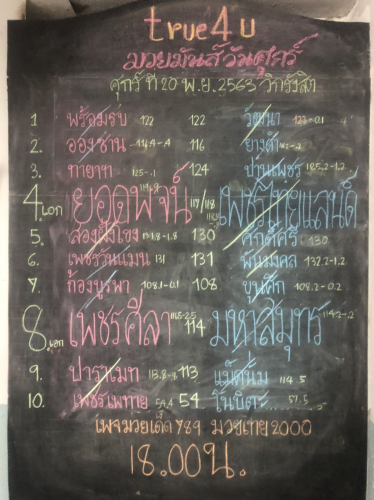 true4u
มวยมันส์วันศุกร์
ศุกร์ ที่ 20 พ.ย. 2563 วิกรังสิต
1 พร้อมรบ 122 122 วัฒนา
2. อองซาน 116 ยางดำ
3. ทายาท 124 ปานเพชร 125.2-1.2
4.เอก ยอดพจน์ 117/118 เพชรไทยแลนด์
5. สองฝั่งโขง 130 ศักดิ์ศรี 130
6. เพชรวันแมน 131 131 พันมงคล 132.2-1.2
7. ก้องบูรพา 108.1-0.1 108 ขุนศึก 108.2-0.2
8.เอก เพชรศิลา 114 มหาสมุทร 114.2-.2
9. ปาราเมท 113.8-.8 113 แม็คนั่ม 114.5
10. เพชรเพทาย 54.4 54 โนบิตะ 57.5
เพจมวยเด็ด789 มวยไทย2000
18.00น.